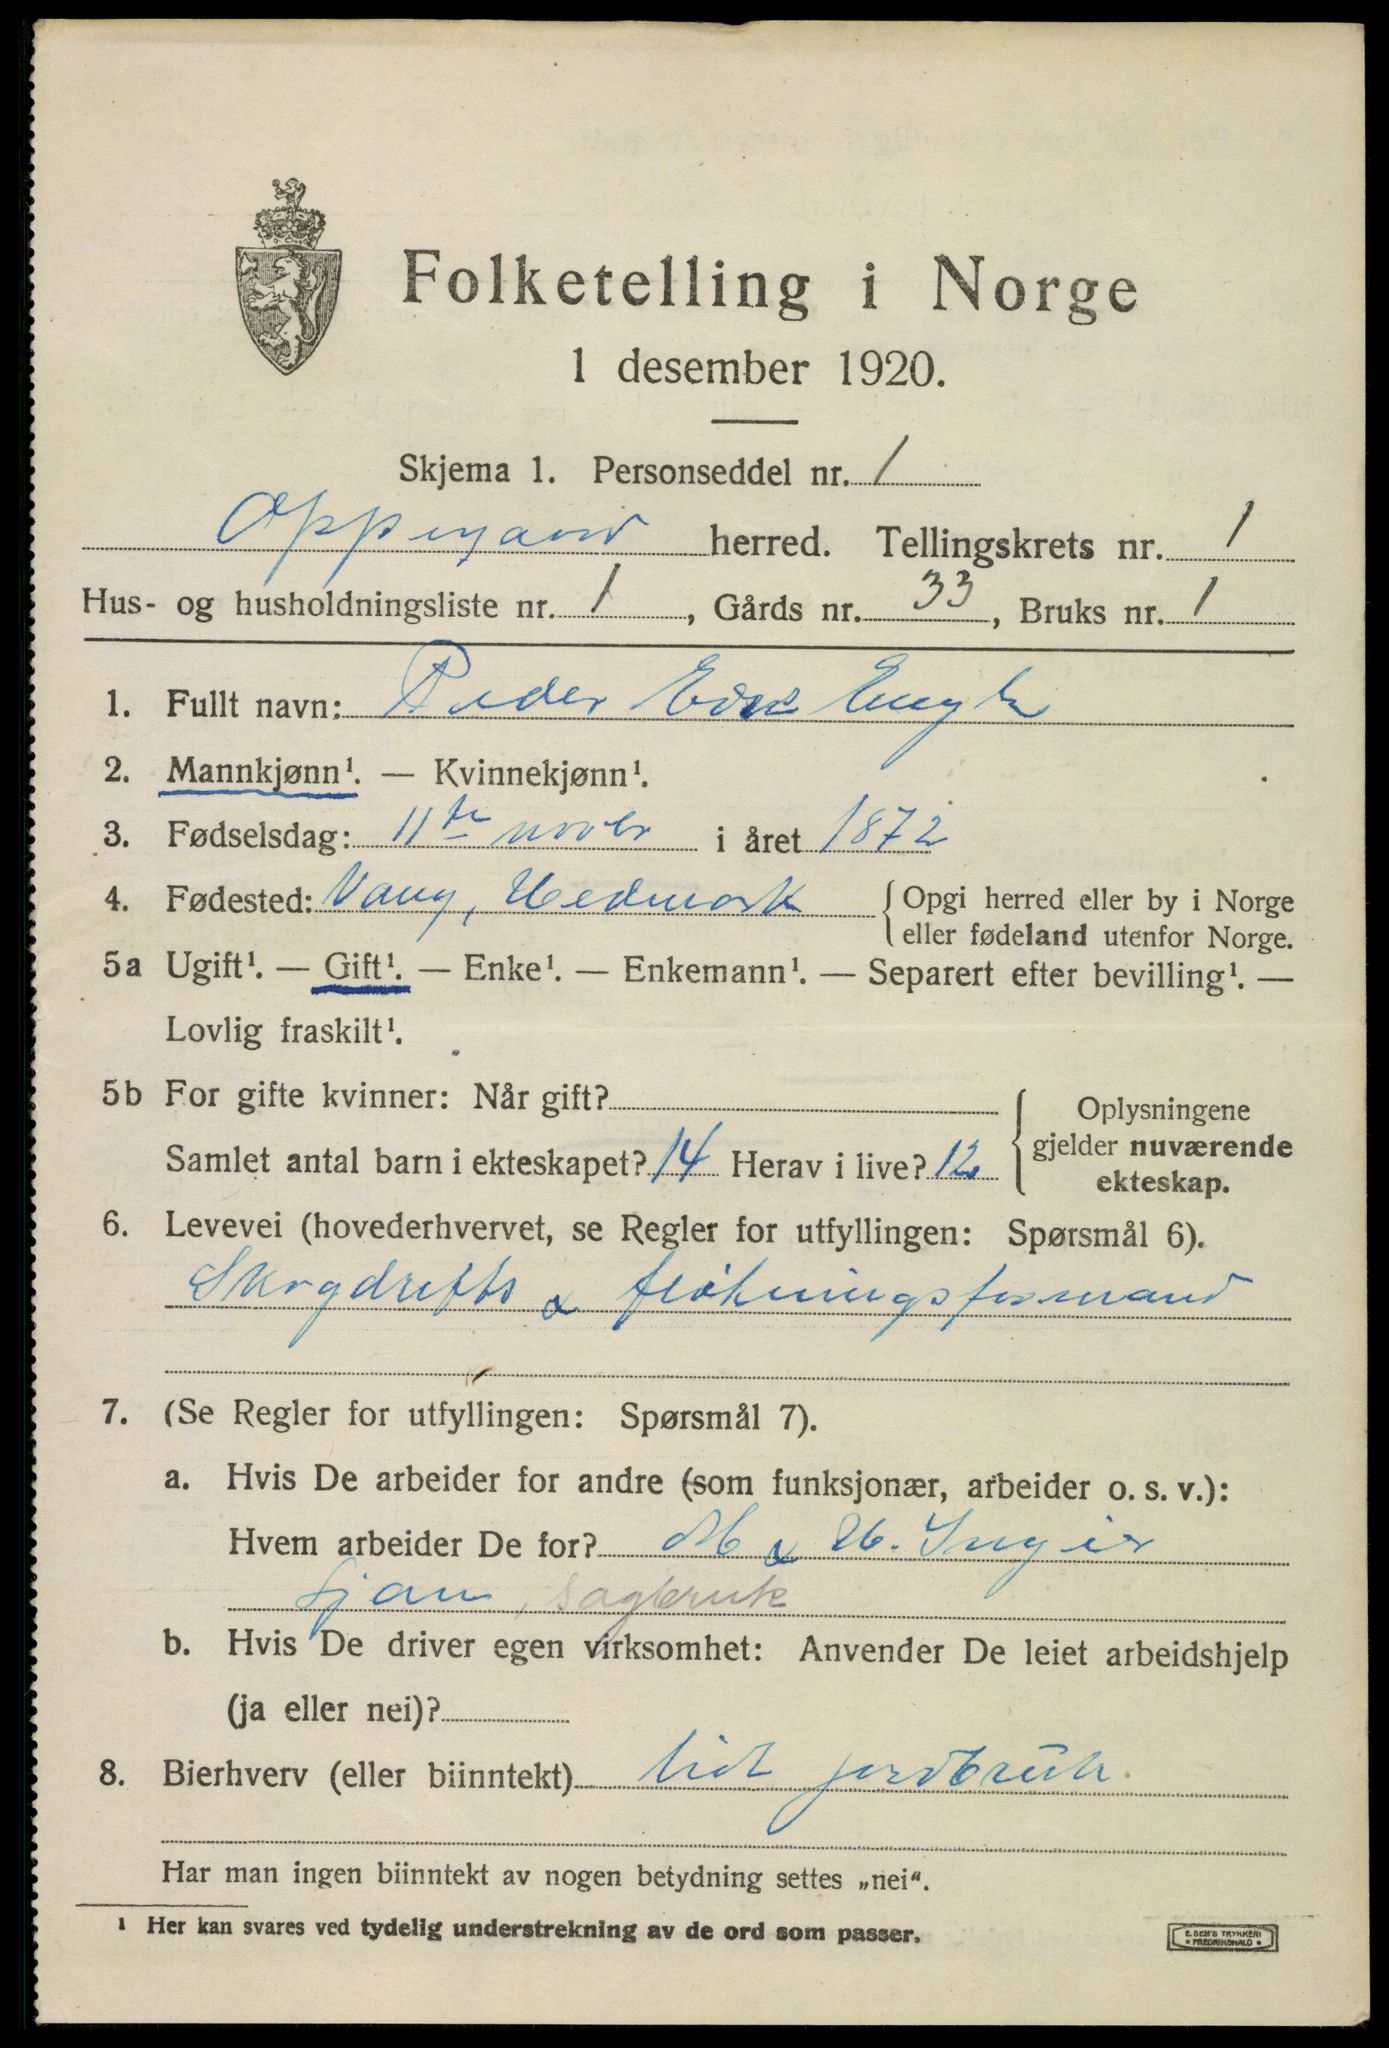 Folketelling i Norge
1 desember 1920.
Skjema 1. Personseddel nr. 1
Oppegaard herred. Tellingskrets nr. 1
Hus- og husholdningsliste nr. 1, Gårds nr. 33, Bruks nr. 1
1. Fullt navn: Peder
2. Mannkjønn¹. — Kvinnekjønn¹.
3. Fødselsdag: 11te novbr i året 1872
4. Fødested: Vang, Hedmark { Opgi herred eller by i Norge
eller fødeland utenfor Norge.
5a Ugift¹. — Gift¹. — Enke¹. — Enkemann¹. — Separert efter bevilling¹. —
Lovlig fraskilt¹.
5b For gifte kvinner: Når gift?
Samlet antal barn i ekteskapet? 14 Herav i live? 12
{ Oplysningene
gjelder nuværende
ekteskap.
6. Levevei (hovederhvervet, se Regler for utfyllingen: Spørsmål 6).
Skogdrifts & fløtningsformand
7. (Se Regler for utfyllingen: Spørsmål 7).
a. Hvis De arbeider for andre (som funksjonær, arbeider o. s. v.):
Hvem arbeider De for? M & H. Ingier
Ljan, sagbruk
b. Hvis De driver egen virksomhet: Anvender De leiet arbeidshjelp
(ja eller nei)?
8. Bierhverv (eller biinntekt) lidt jordbruk.
Har man ingen biinntekt av nogen betydning settes „nei“.
¹ Her kan svares ved tydelig understrekning av de ord som passer.
E. SEM'S TRYKKERI
• FREDRIKSHALD •